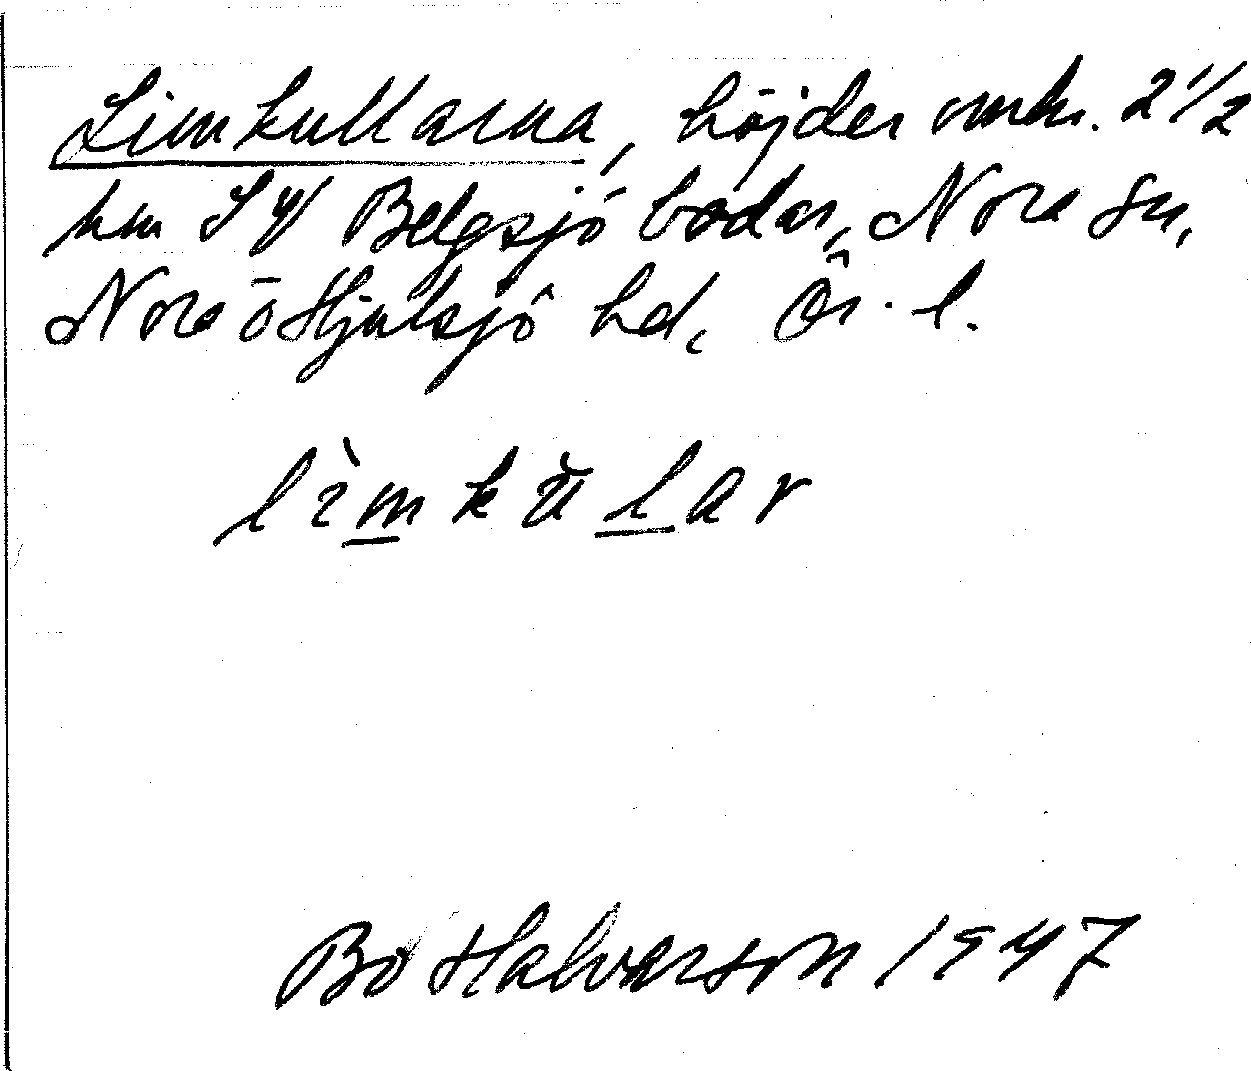 Limkullarna, höjder omkr. 2 1/2
km S af Belgsjö bodar, Nora sn,
Nora ō Hjulsjö hd, Ör. l.
lìmkŭlar
Bo Halvarson 1947